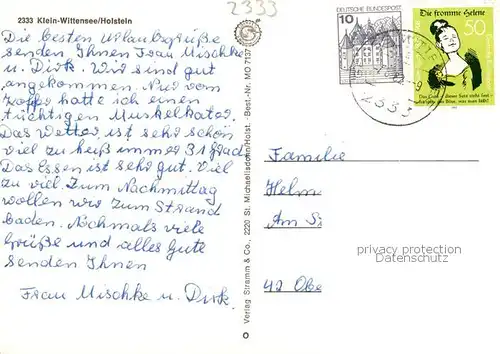 2333 Klein-Wittensee/Holstein
2333
Die besten Urlaubsgrüße
senden Ihnen Frau Mischke
u. Dirk. Wir sind gut
angekommen. Nur vom
Koffer hatte ich einen
tüchtigen Muskelkater.
Das Wetter ist sehr schön
viel zu heiß immer 31 Grad
Das Essen ist sehr gut. Viel
zu viel. Zum Nachmittag
wollen wir zum Strand
baden. Nochmals viele
Grüße und alles Gute
senden Ihnen
Frau Mischke u. Dirk.
Verlag Stramm & Co., 2220 St. Michaelisdonn/Holst. Best.-Nr. MO 7137
DEUTSCHE BUNDESPOST
10
Die fromme Helene
50
2333
Familie
Helm
Am
42 Obe
privacy protection
Datenschutz